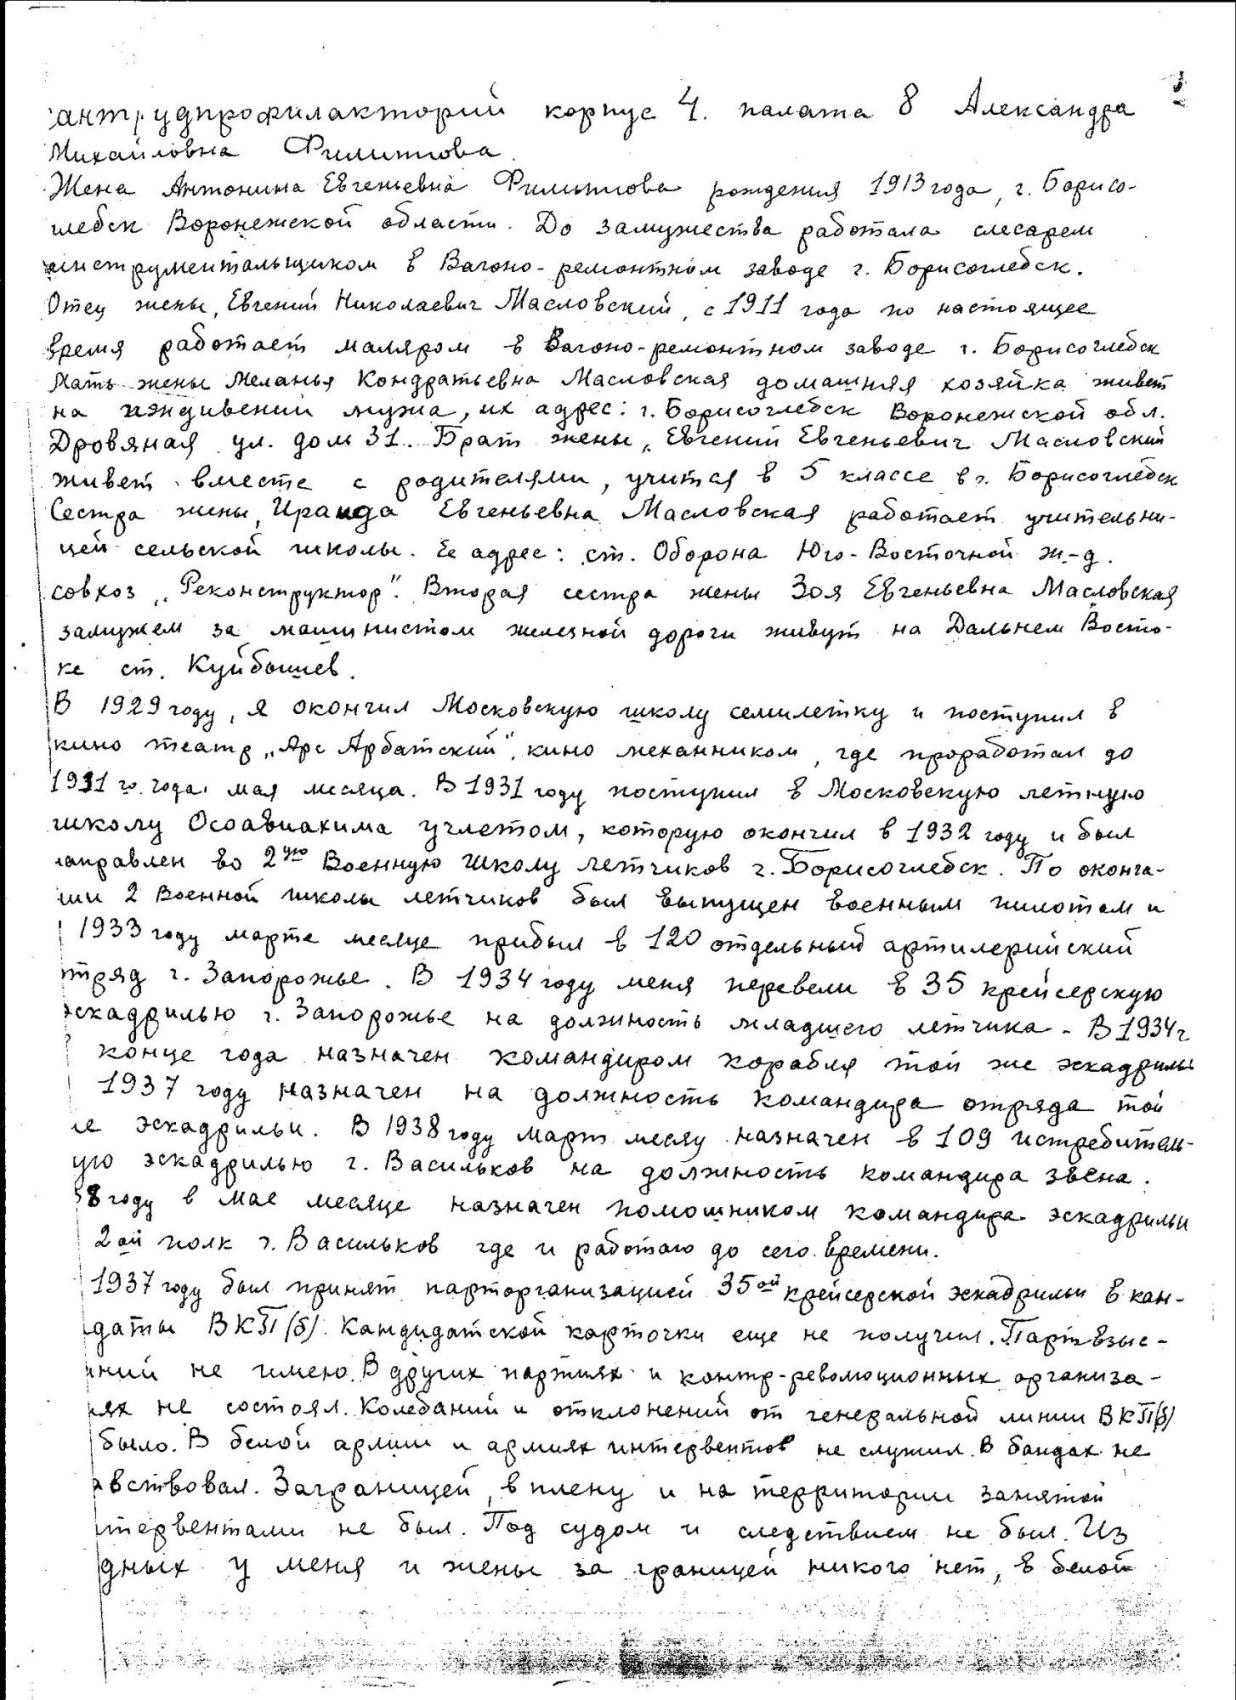 антрудпрофилакторий корпус 4. палата 8 Александра
Михайловна Филиппова.
Жена Антонина Евгеньевна Филиппова рождения 1913 года, г. Борисо-
глебск Воронежской области. До замужества работала слесарем
инструментальщиком в Вагоно-ремонтном заводе г. Борисоглебск.
Отец жены, Евгений Николаевич Масловский, с 1911 года по настоящее
время работает маляром в Вагоно-ремонтном заводе г. Борисоглебск
Мать жены Меланья Кондратьевна Масловская домашняя хозяйка живет
на иждивении мужа, их адрес: г. Борисоглебск Воронежской обл.
Дровяная ул. дом 31. Брат жены, Евгений Евгеньевич Масловский
живет вместе с родителями, учится в 5 классе в г. Борисоглебск
Сестра жены, Ираида Евгеньевна Масловская работает учительни-
цей сельской школы. Ее адрес: ст. Оборона Юго-Восточной ж-д.
совхоз „Реконструктор". Вторая сестра жены Зоя Евгеньевна Масловская
замужем за машинистом железной дороги живут на Дальнем Восто-
ке ст. Куйбышев.
В 1929 году, я окончил Московскую школу семилетку и поступил в
кино театр „Арс Арбатский", кино механником, где проработал до
1931 го. года. мая месяца. В 1931 году поступил в Московскую летную
школу Осоавиахима учлетом, которую окончил в 1932 году и был
направлен во 2ую Военную школу летчиков г. Борисоглебск. По оконча-
нии 2 Военной школы летчиков был выпущен военным пилотом и
1933 году марте месяце прибыл в 120 отдельный артилерийский
тряд г. Запорожье. В 1934 году меня перевели в 35 крейсерскую
эскадрилью г. Запорожье на должность младшего летчика. В 1934 г
конце года назначен командиром корабля той же эскадрильи
1937 году назначен на должность командира отряда той
е эскадрильи. В 1938 году март месяц назначен в 109 истребитель-
ую эскадрилью г. Васильков на должность командира звена.
38 году в мае месяце назначен помошником командира эскадрильи
2ой полк г. Васильков где и работаю до сего времени.
1937 году был принят парторганизацией 35ой крейсерской эскадрильи в кан-
даты ВКП(б). Кандидатской карточки еще не получил. Партвзыс-
ний не имею. В других партиях и контр-революционных организа-
иях не состоял. Колебаний и отклонений от генеральной линии ВКП(б)
было. В белой армии и армиях интервентов не служил. В бандах не
вствовал. Заграницей, в плену и на территории занятой
тервентами не был. Под судом и следствием не был. Из
дных у меня и жены за границей никого нет, в белой